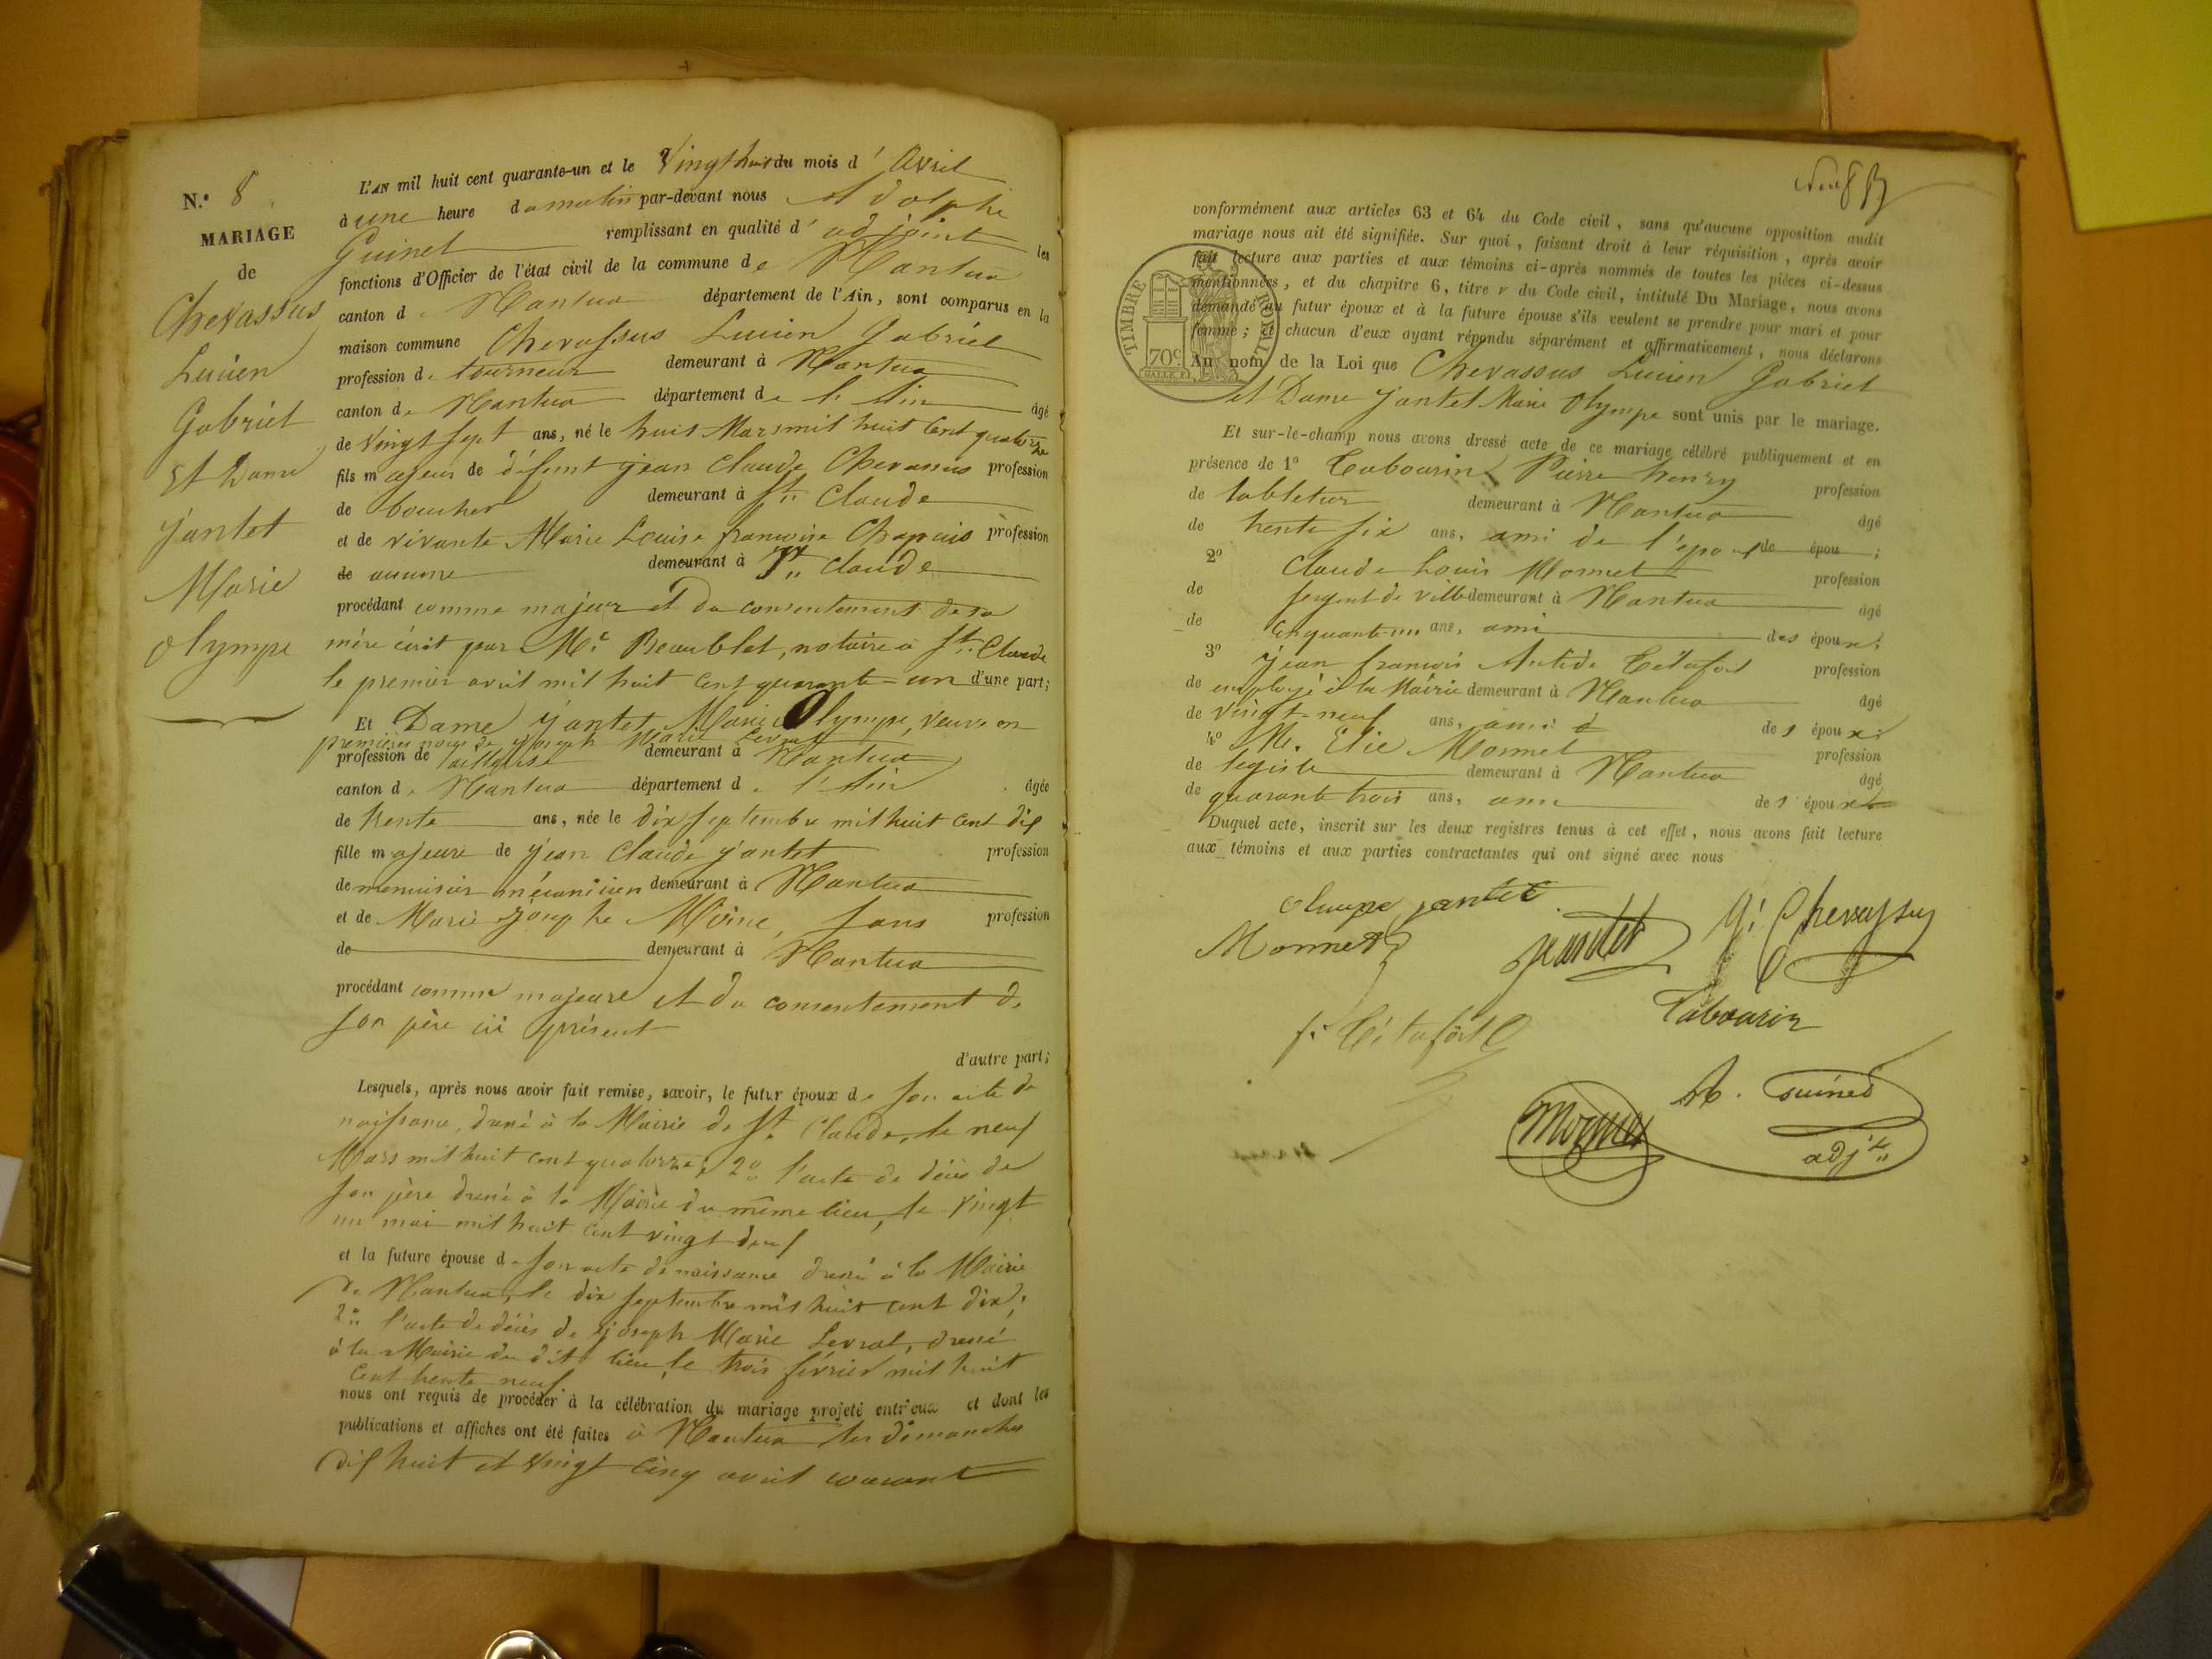 N.° 8
MARIAGE
de
Chevassus
Lucien
Gabriel
Et Dame
Jantet
Marie
Olympe
L'AN mil huit cent quarante-un et le Vingt huit du mois d' Avril
à une heure du matin par-devant nous Adolphe
Guinet remplissant en qualité d' adjoint les
fonctions d'Officier de l'état civil de la commune de Nantua
canton de Nantua département de l'Ain, sont comparus en la
maison commune Chevassus Lucien Gabriel
profession de tourneur demeurant à Nantua
canton de Nantua département de l'Ain âgé
de Vingt sept ans, né le huit Mars mil huit Cent quatorze
fils majeur de défunt Jean Claude Chevassus profession
de boucher demeurant à St. Claude
et de vivante Marie Louise françoise Chapuis profession
de aucune demeurant à St. Claude
procédant comme majeur et du consentement de sa
mère écrit par Me. Beaublet, notaire à St. Claude
le premier avril mil huit cent quarante=un d'une part;
Et Dame Jantet Marie Olympe, veuve en
premières noces de Joseph Marie Levrat
profession de tailleuse demeurant à Nantua
canton de Nantua département de l'Ain âgée
de trente ans, née le dix septembre mil huit cent dix
fille majeure de Jean Claude Jantet profession
de menuisier mécanicien demeurant à Nantua
et de Marie Josephe Moine, sans profession
de demeurant à Nantua
procédant comme majeure et du consentement de
son père ici présent
d'autre part;
Lesquels, après nous avoir fait remise, savoir, le futur époux de son acte de
naissance, dressé à la Mairie de St. Claude, le neuf
Mars mil huit cent quatorze; 2° l'acte de décès de
son père dressé à la Mairie du même lieu, le vingt
un mai mil huit cent vingt deux
et la future épouse de son acte de naissance dressé à la Mairie
de Nantua, le dix septembre mil huit cent dix;
2° l'acte de décès de Joseph Marie Levrat, dressé
à la Mairie du dit lieu, le trois février mil huit
cent trente neuf
nous ont requis de procéder à la célébration du mariage projeté entr'eux et dont les
publications et affiches ont été faites à Nantua les dimanches
dix huit et vingt cinq avril courant
neuf
conformément aux articles 63 et 64 du Code civil, sans qu'aucune opposition audit
mariage nous ait été signifiée. Sur quoi, faisant droit à leur réquisition, après avoir
fait lecture aux parties et aux témoins ci-après nommés de toutes les pièces ci-dessus
mentionnées, et du chapitre 6, titre v du Code civil, intitulé Du Mariage, nous avons
demandé au futur époux et à la future épouse s'ils veulent se prendre pour mari et pour
femme; et chacun d'eux ayant répondu séparément et affirmativement, nous déclarons
TIMBRE ROYAL
70c
Au nom de la Loi que Chevassus Lucien Gabriel
et Dame Jantet Marie Olympe sont unis par le mariage.
Et sur-le-champ nous avons dressé acte de ce mariage célébré publiquement et en
présence de 1° Tabourin Pierre henry profession
de tabletier demeurant à Nantua âgé
de trente six ans, ami de l'époux de épou ;
2° Claude Louis Monnet profession
de sergent de ville demeurant à Nantua âgé
de cinquante-un ans, ami des époux;
3° Jean françois Antide profession
de employé à la Mairie demeurant à Nantua âgé
de vingt-neuf ans, ami des époux;
4° M. Elie Monnet profession
de légiste demeurant à Nantua âgé
de quarante trois ans, ami des époux
Duquel acte, inscrit sur les deux registres tenus à cet effet, nous avons fait lecture
aux témoins et aux parties contractantes qui ont signé avec nous
Olimpe jantet
Monnet
Jantet
G. Chevassus
Tabourin
A. Guinet
adjt.